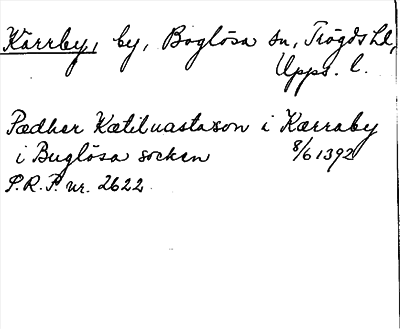 Kärrby, by, Boglösa sn, Trögds hd,
Upps. l.
Pædher Kætiluastason i Kærraby
i Buglösa socken 8/6 1392
S.R.P. nr. 2622